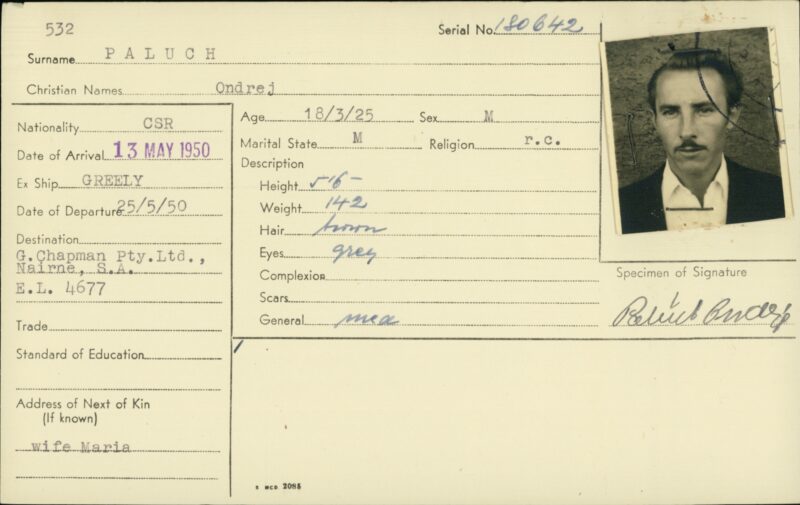 532
Serial No. 180642
Surname PALUCH
Christian Names Ondrej
Nationality CSR
Date of Arrival 13 MAY 1950
Ex Ship GREELY
Date of Departure 25/5/50
Destination
G.Chapman Pty.Ltd.,
Nairne, S.A.
E.L. 4677
Trade
Standard of Education
Address of Next of Kin
(If known)
wife Maria
Age 18/3/25 Sex M
Marital State M Religion r.c.
Description
Height 5'6"
Weight 142
Hair brown
Eyes grey
Complexion
Scars
General med
Specimen of Signature
Paluch Ondrej
W.C.D. 2085